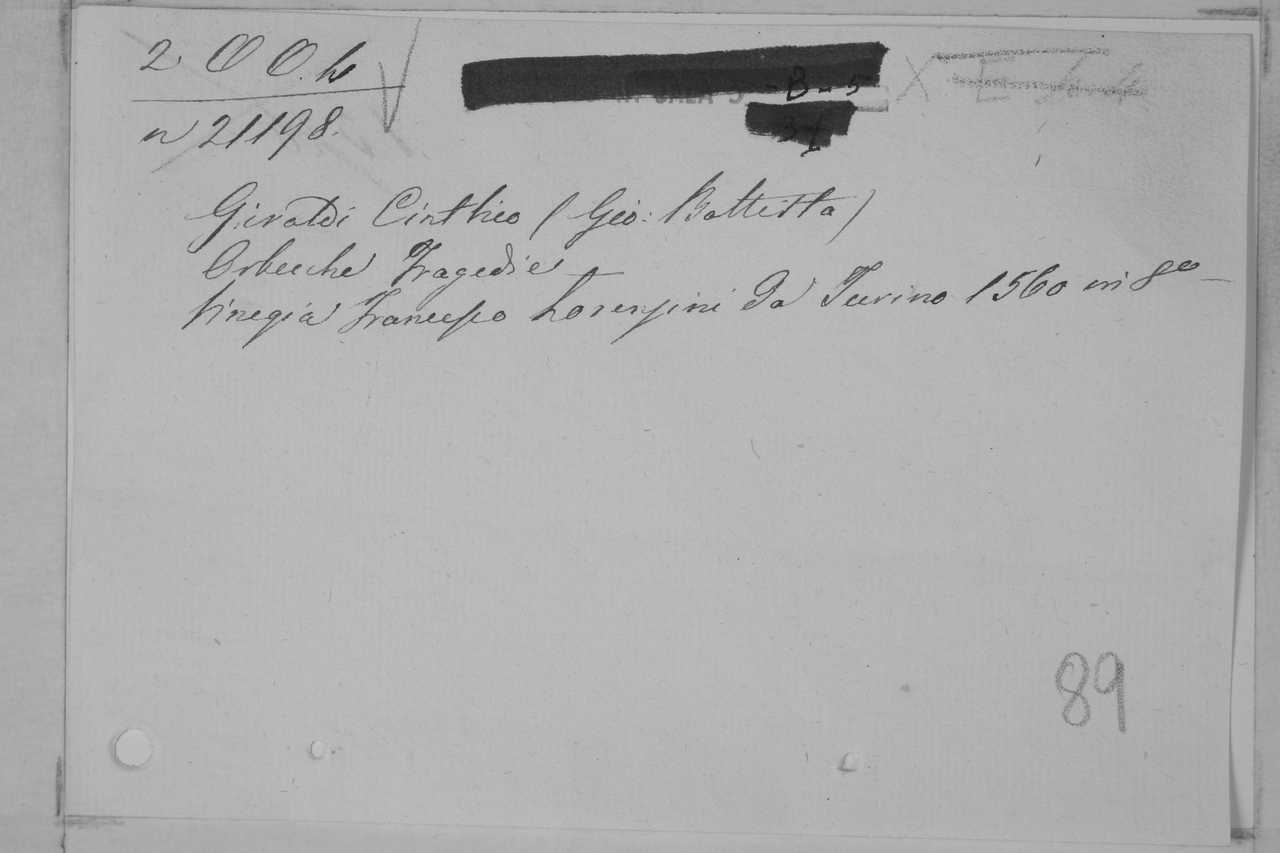 2 O O. h
n 21198.
B - 5
Giraldi Cinthio (Gio: Battista)
Orbecche Tragedie
Vinegia Francesco Lorenzini da Turino 1560 in 8º
89